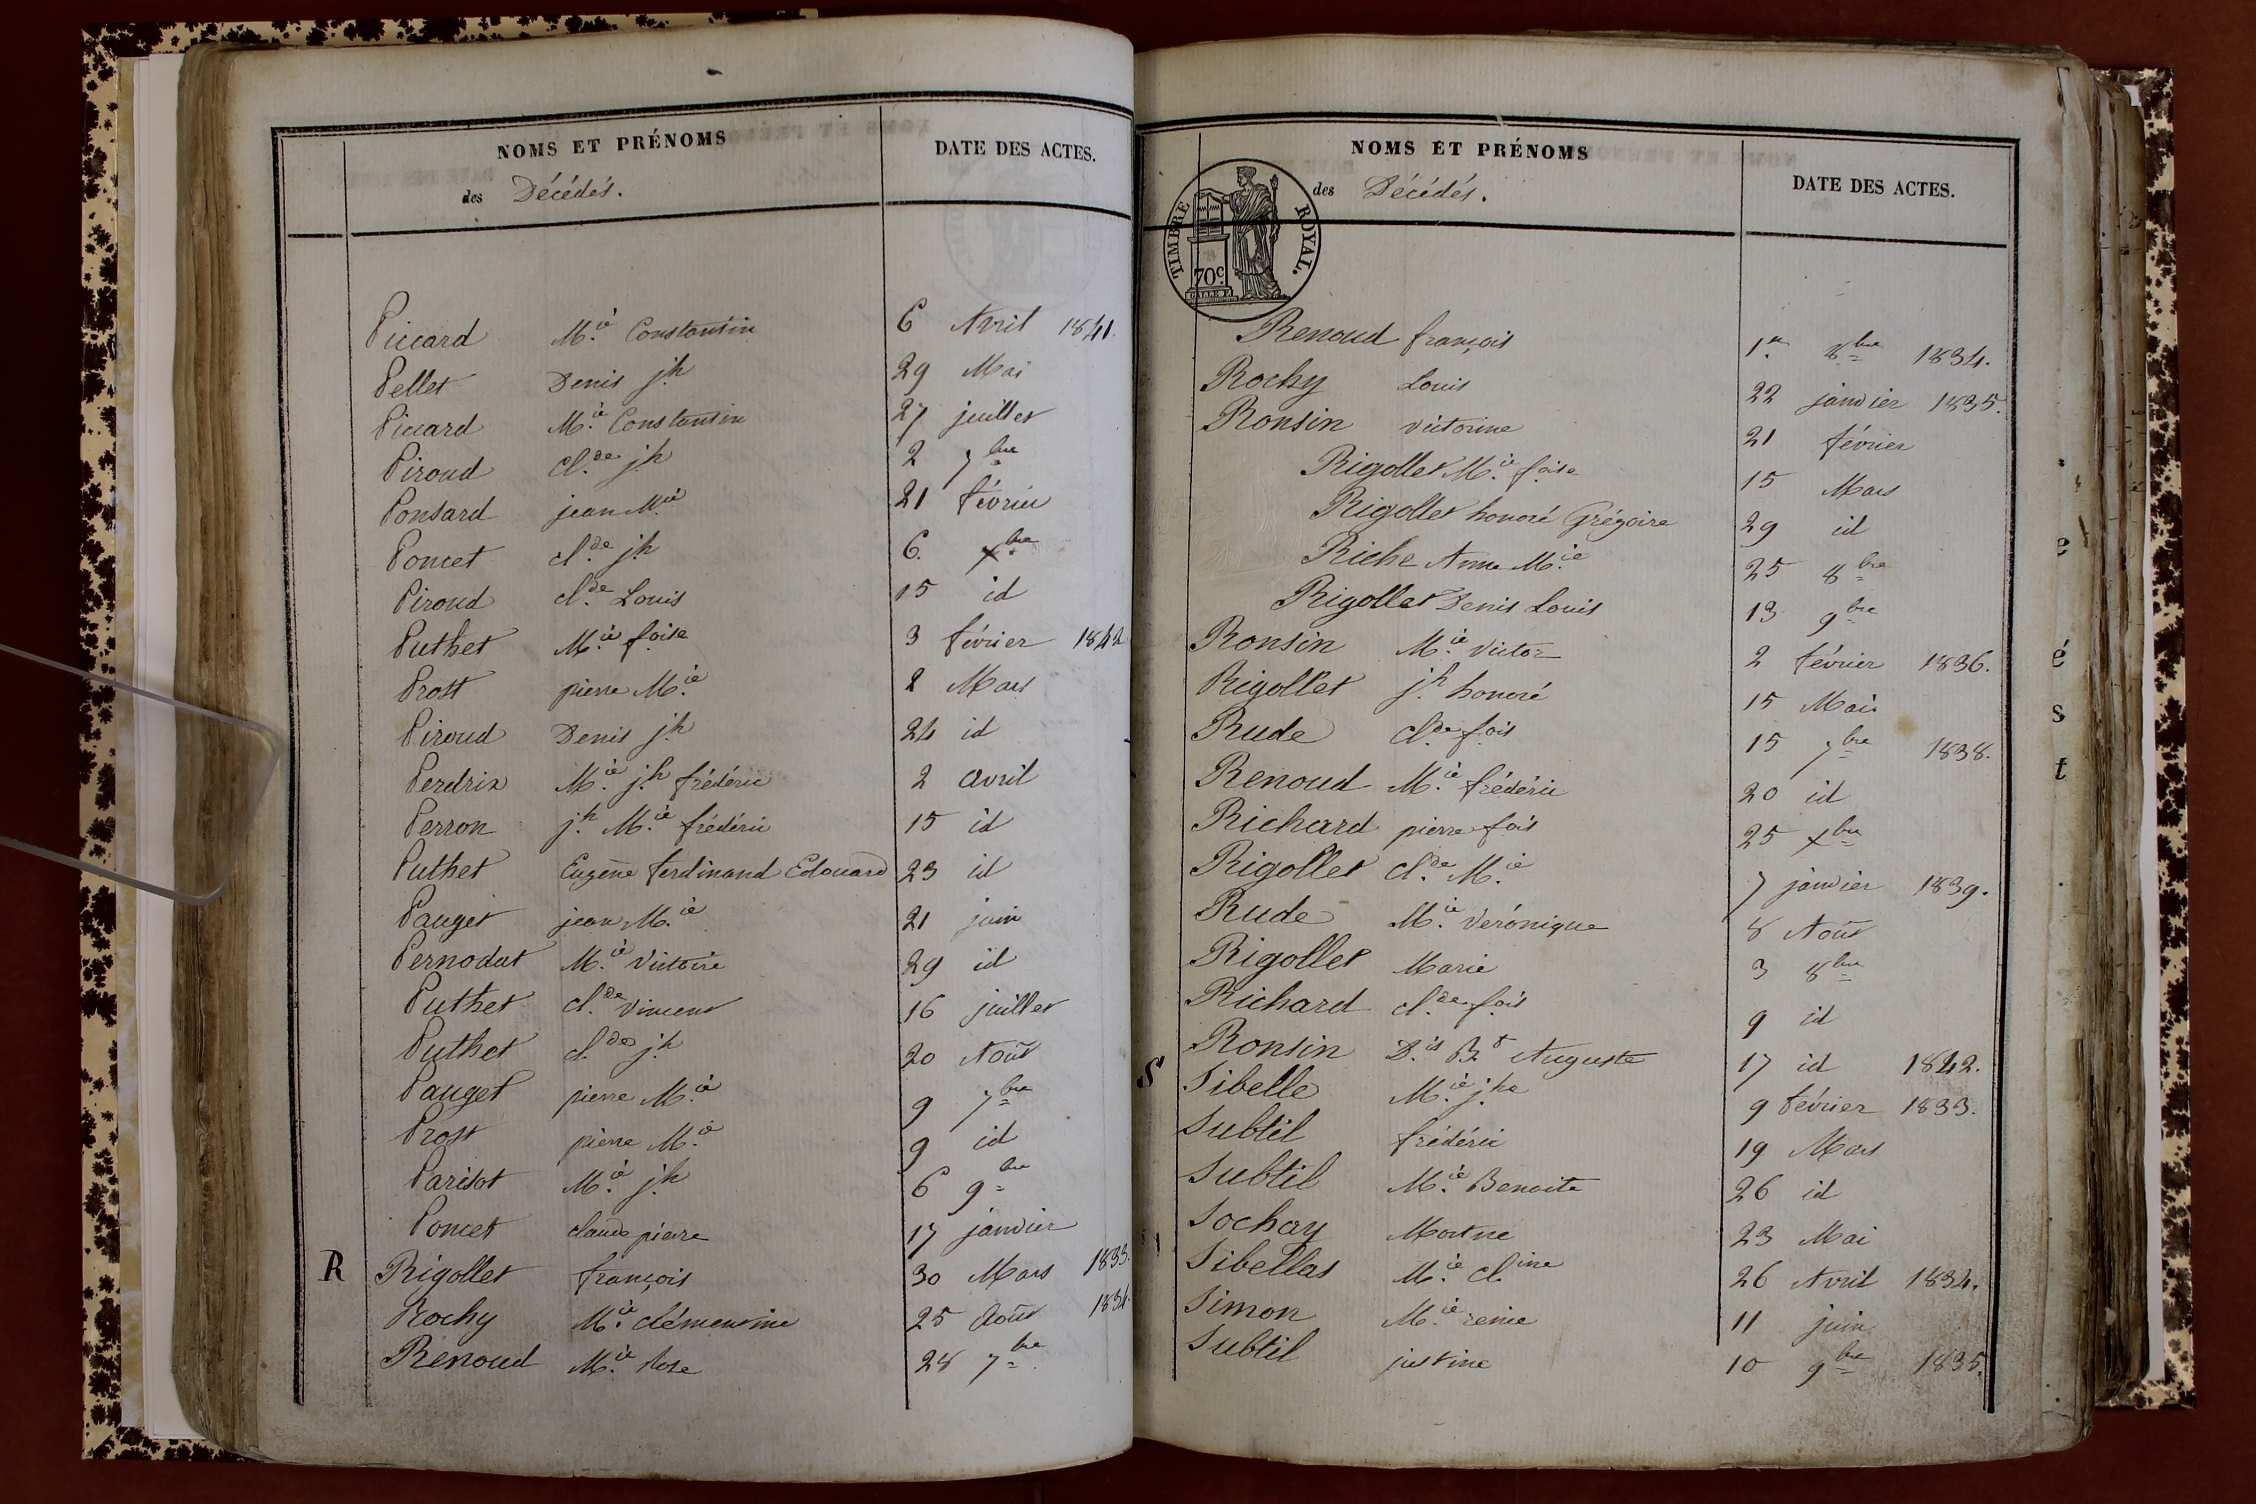 NOMS ET PRÉNOMS
DATE DES ACTES.
des Décédés.
Piccard M.ie Constantin 6 Avril 1841.
Pellet Denis j.h 29 Mai
Piccard M.ie Constantin 27 juillet
Piroud Cl.de j.h 2 7bre
Ponsard jean M.ie 21 février
Poncet cl.de j.h 6. Xbre
Piroud cl.de Louis 15 id
Puthet M.ie f.oise 3 février 1842
Prost pierre M.ie 2 Mars
Piroud Denis j.h 24 id
Perdrix M.ie j.h frédéric 2 avril
Perron j.h M.ie frédéric 15 id
Puthet Eugène ferdinand Edouard 23 id
Pauget jean M.ie 21 juin
Pernodat M.ie Victoire 29 id
Puthet cl.de Vincent 16 juillet
Puthet cl.de j.h 20 Août
Pauget pierre M.ie 9 7bre
Prost pierre M.ie 9 id
Parisot M.ie j.h 6 9bre
Poncet claude pierre 17 janvier
R Rigollet françois 30 Mars 1833.
Rochy M.ie clémentine 25 Août 1834.
Renoud M.ie Rose 28 7bre
NOMS ET PRÉNOMS
DATE DES ACTES.
des Décédés.
TIMBRE ROYAL.
70c.
Renoud françois 1.er 8bre 1834.
Rochy Louis 22 janvier 1835.
Ronsin victorine 21 février
Rigollet M.ie f.oise 15 Mars
Rigollet honoré Grégoire 29 id
Riche Anne M.ie 25 8bre
Rigollet Denis Louis 13 9bre
Ronsin M.ie Victor 2 février 1836.
Rigollet j.h honoré 15 Mai
Rude cl.de f.ois 15 7bre 1838.
Renoud M.ie frédéric 20 id
Richard pierre f.ois 25 Xbre
Rigollet cl.de M.ie 7 janvier 1839.
Rude M.ie Véronique 8 Août
Rigollet Marie 3 8bre
Richard cl.de f.ois 9 id
Ronsin D.is B.t Auguste 17 id 1842.
S Sibelle M.ie j.he 9 février 1833.
Subtil frédéric 19 Mars
Subtil M.ie Benoite 26 id
Sochay 23 Mai
Sibellas M.ie cl.ine 26 Avril 1834.
Simon M.ie reine 11 juin
Subtil justine 10 9bre 1835.
e
é
s
t